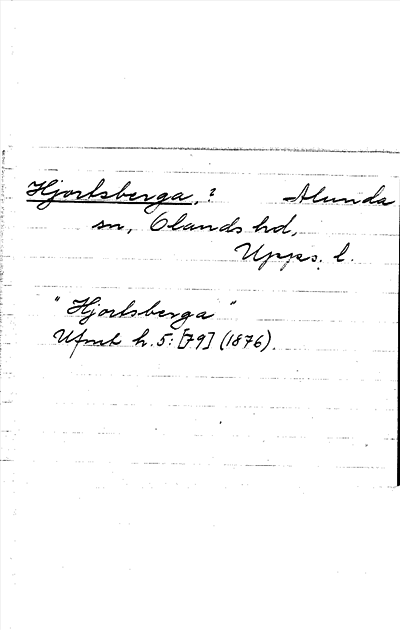 Hjortsberga, ? Alunda
sn, Olands hd,
Upps. l.
"Hjortsberga"
Ufmt h. 5: [79] (1876).